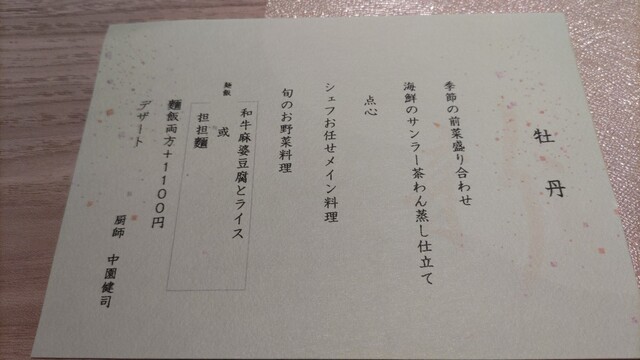 牡丹
季節の前菜盛り合わせ
海鮮のサンラー茶わん蒸し仕立て
点心
シェフお任せメイン料理
旬のお野菜料理
麺飯
和牛麻婆豆腐とライス
或
担担麺
麺飯両方+1100円
デザート
厨師 中園健司